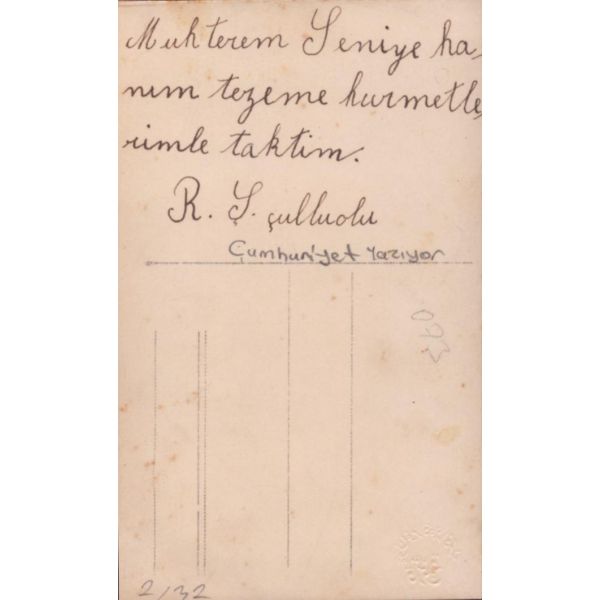 Muhterem Seniye ha-
nım tezeme hurmetle,
rimle taktim.
R. Ş. çulluolu
Çumhuriyet Yazıyor
093
2/32